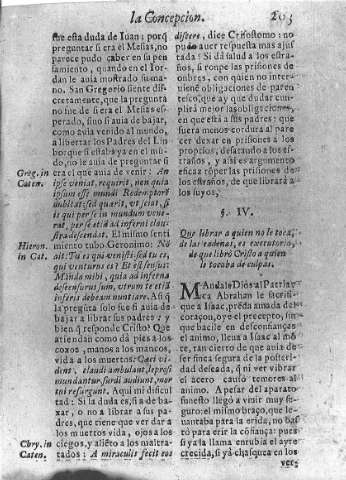 la Concepcion. 203
fue esta duda de Iuan; porq̃
preguntar si era el Mesias, no
parece pudo caber en su pen-
samiento, quando en el Ior-
dan le auia mostrado su ma-
no. San Gregorio siente dis-
cretamente, que la pregunta
no fue de si era el Mesias es-
perado, sino si auia de bajar,
como auia venido al mundo,
a libertar los Padres del Lin
bo: que si estaba ya en el mu-
do, no le auia de preguntar si
Greg. in era el que auia de venir: An
Caten. ipse veniat, requirit, non quia
ipsum esse mundi Redemptorem
dubitat: sed quærit, vt sciat, si
is qui per se in mundum vene-
rat, per se etiā ad inferni clau-
stra descenderet. El mismo senti
Hieron. miento tubo Geronimo: Nō
in Cat. ait: Tu es qui venisti, sed tu es,
qui venturus es? Et est sensus:
Manda mihi, quia ad inferna
descensurus sum, vtrum te etiā
inferis debeam nuntiare. Asi q̃
la pregūta solo fue si auia de
bajar a librar sus padres: y
bien q̃ responde Cristo? Que
atiendan como dá pies a los
coxos, manos a los mancos,
vida a los muertos: Cæci vi-
dent, claudi ambulant, leprosi
mundantur, surdi audiunt, mor
tui resurgunt. Aqui mi dificul
tad: Si la duda es, si a de ba-
xar, o no a librar a sus pa-
dres, que tiene que ver dar a
los muertos vida, ojos a los
Chry. in ciegos, y alieto a los maltra-
Caten. tados: A miraculis fecit eos
discere, dice Crisostomo: no
pudo auer respuesta mas ajus
tada: Si dá salud a los estra-
ños, si ronpe las prisiones de
onbres, con quien no interuiene
obligaciones de paren
tesco, que ay que dudar cun-
plirá mejor las obligaciones,
en que está a sus padres: que
fuera menos cordura al pare-
cer dexar en prisiones a los
propios, desatando a los es-
traños, y asi es argumento
eficaz rōper las prisiones de
los estraños, de que librará a
los suyos.
§. IV.
Que librar a quien no le toca,
de las cadenas, es executoria,
de que libró Cristo a quien
le tocaba de culpas.
MAndale Dios al Patriar
ca Abraham le sacrifi-
que a Isaac, prēda amada del
coraçon, oye el precepto, sin
que bacile en desconfianças
el animo, lleua a Isaac al mō
te, tan cierto de que auia de
ser finca segura de la posteri-
dad deseada, q̃ ni ver vibrar
el acero causó temores al
animo. A pesar del aparato
funesto llegó a viuir muy se-
guro: el mismo braço, que le-
uantaba para la erida, no bas
tó para erir la cōfiança: pues
si ya la llama enrubia el ayre
crecida, si yá chalquea en los
ver-